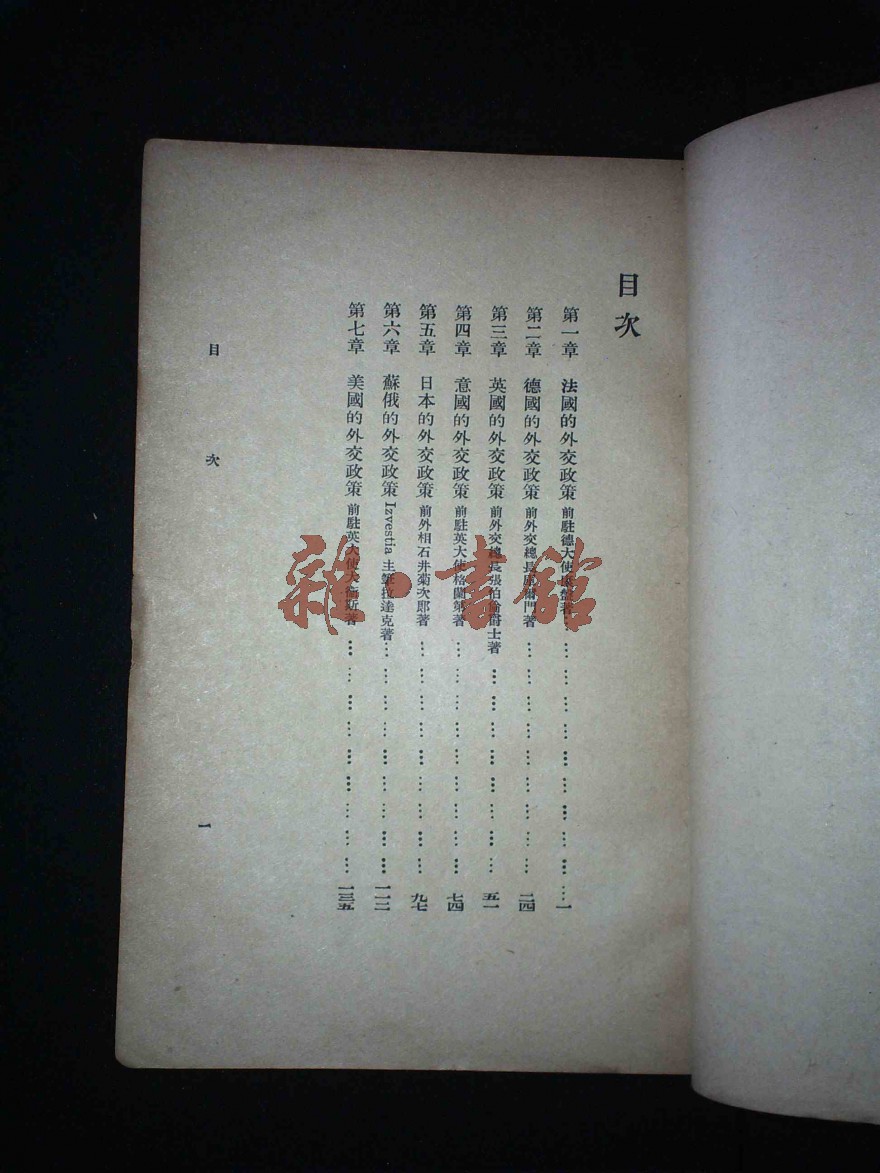 目次
第一章 法國的外交政策 前駐德大使盤著……一
第二章 德國的外交政策 前外交總長爾門著……二四
第三章 英國的外交政策 前外交總長張伯倫爵士著……五一
第四章 意國的外交政策 前駐英大使格蘭第著……七四
第五章 日本的外交政策 前外相石井菊次郎著……九七
第六章 蘇俄的外交政策 Izvestia 主筆拉達克著……一一二
第七章 美國的外交政策 前駐英大使大衞斯著……一三五
目次
一
雜·書館